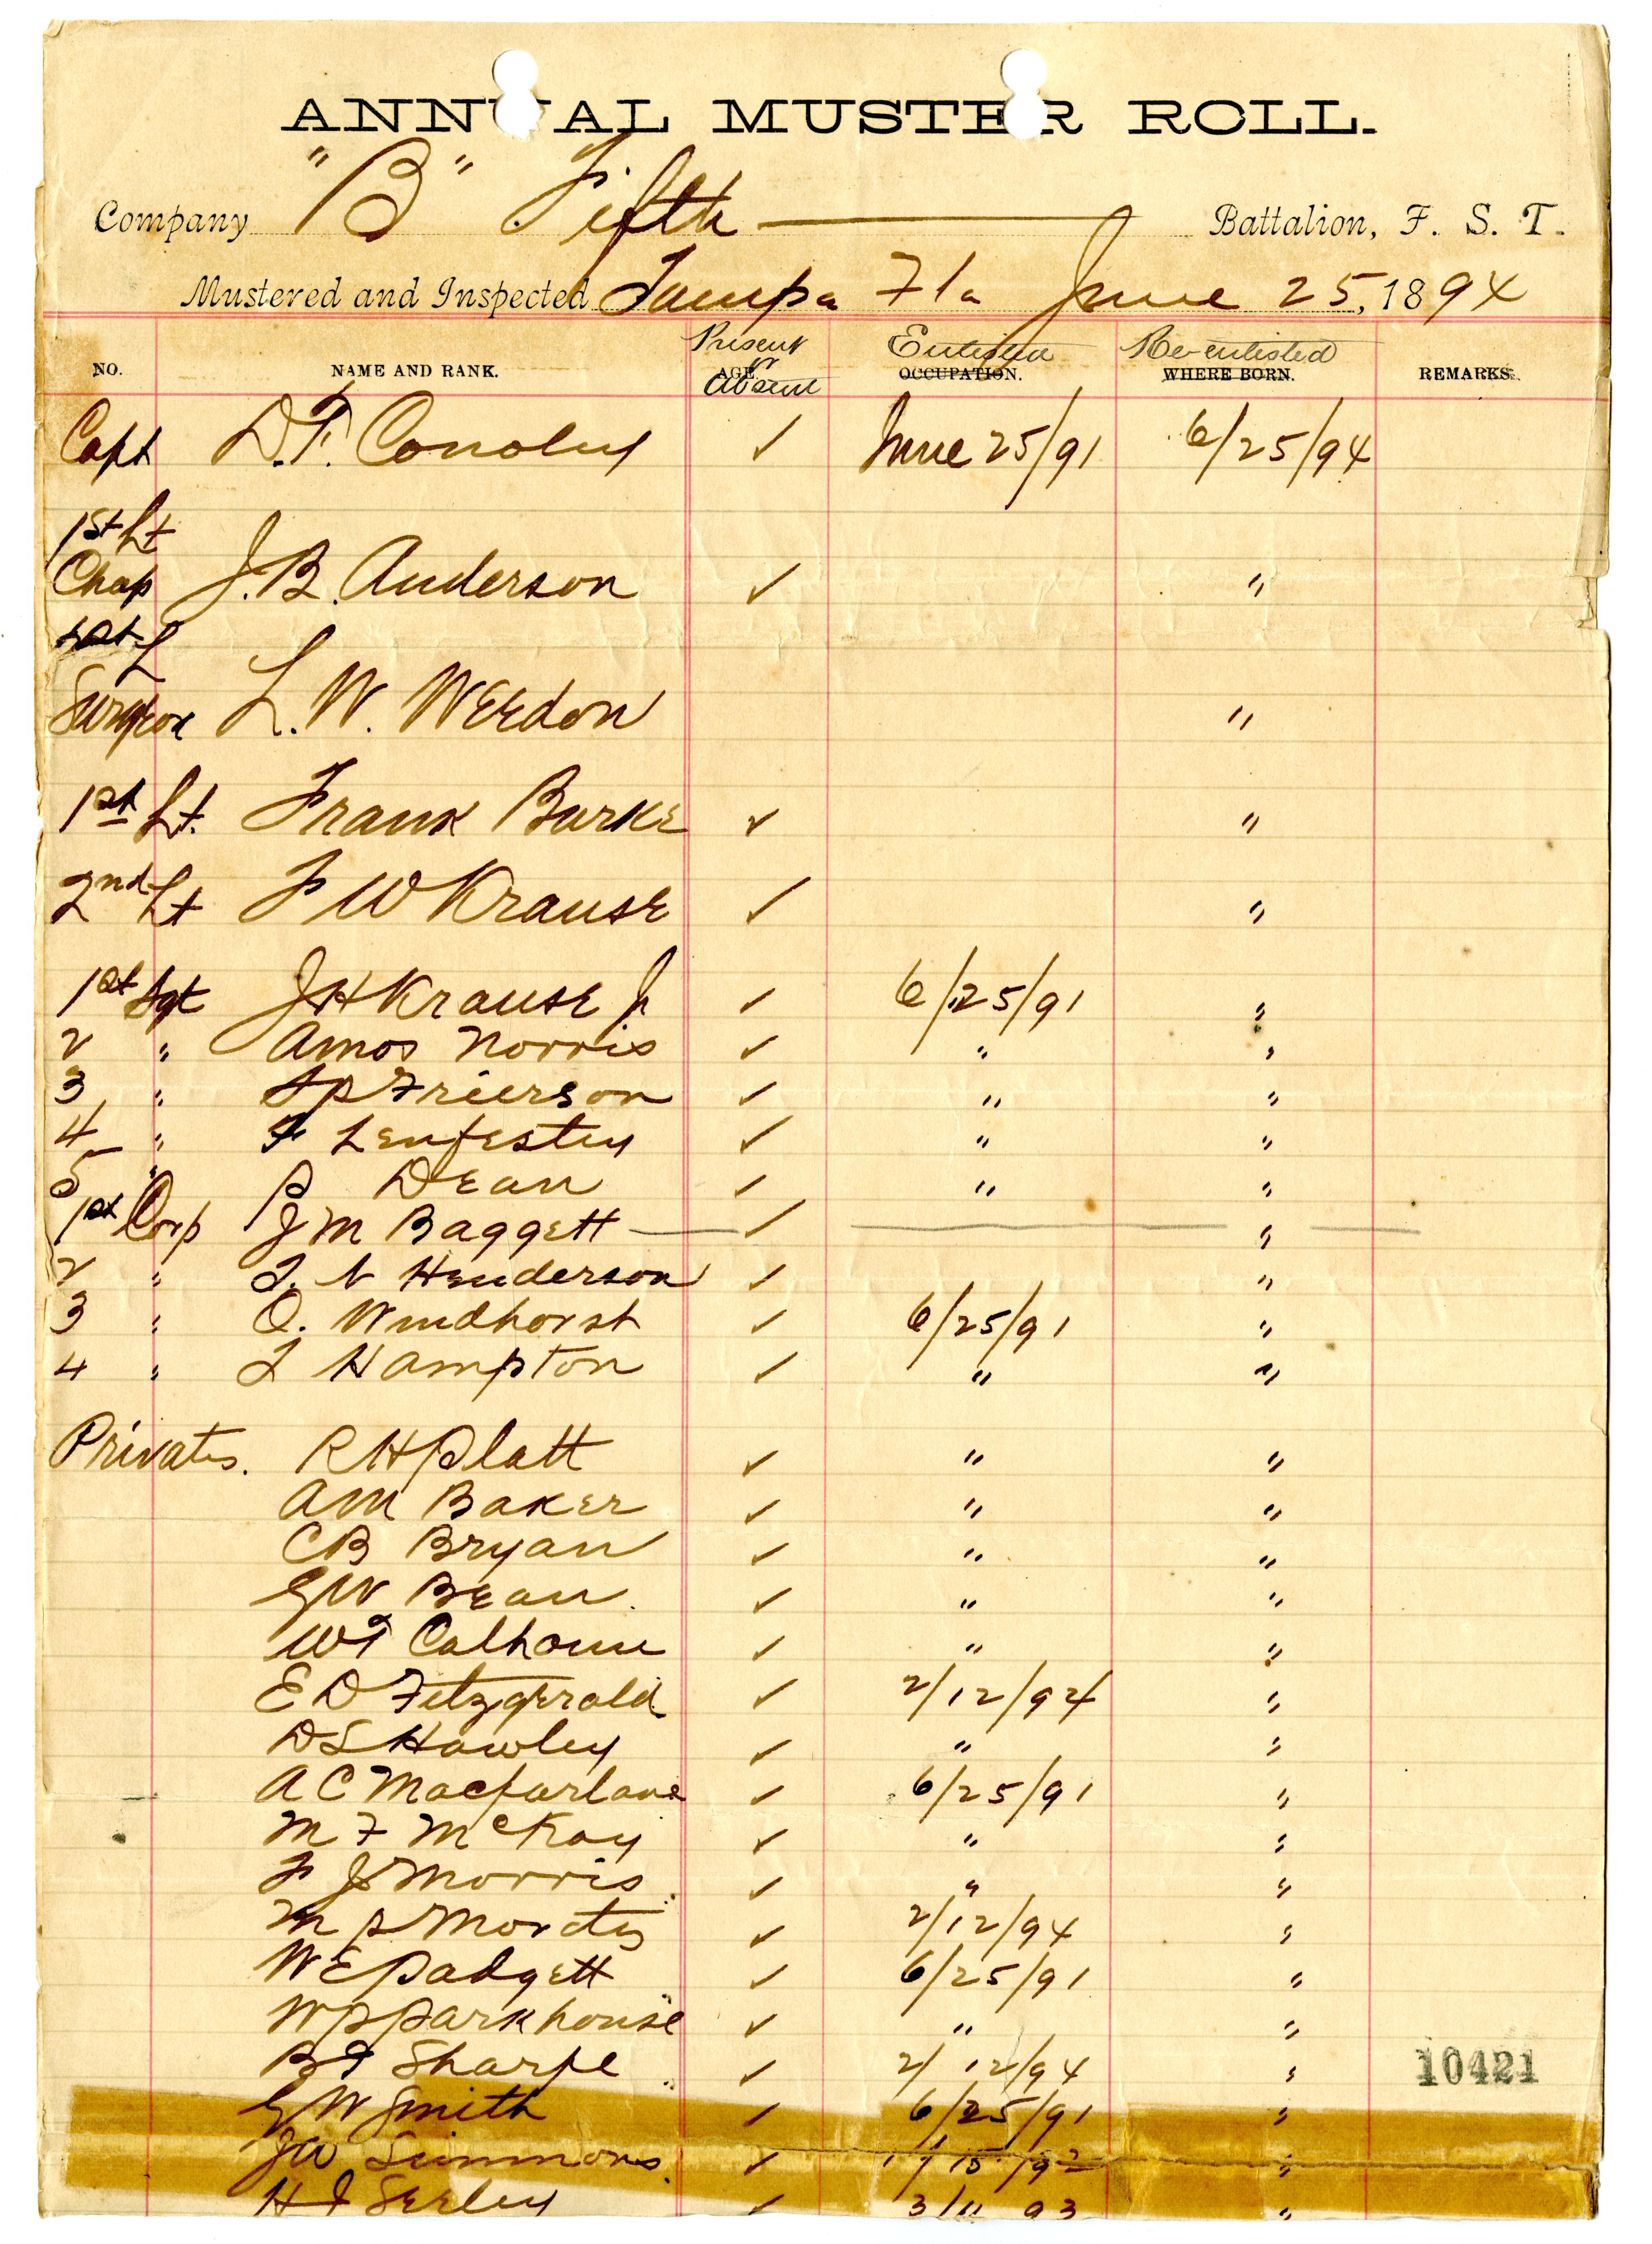 ANNUAL MUSTER ROLL.
Company "B" Fifth Battalion, F. S. T.
Mustered and Inspected Tampa Fla June 25, 1894
NO. NAME AND RANK. AGE. Present or Absent OCCUPATION. Enlisted WHERE BORN. Re-enlisted REMARKS.
Capt D.F. Conoley ✓ June 25/91 6/25/94
1st Lt
Chap J.B. Anderson ✓ "
1st L
Surgeon L.W. Weedon "
1st Lt. Frank Burke ✓ "
2nd Lt F W Krause ✓ "
1st Sgt J H Krause Jr ✓ 6/25/91 "
2 " Amos Norris ✓ " "
3 " Frierson ✓ " "
4 " F Lenfestey ✓ " "
5 " P Dean ✓ " "
1st Corp J M Baggett ✓ "
2 " T. N Henderson ✓ "
3 " O. Windhorst ✓ 6/25/91 "
4 " L Hampton ✓ " "
Privates. R H Platt ✓ " "
A M Baker ✓ " "
C B Bryan ✓ " "
G W Bean ✓ " "
W T Calhoun ✓ " "
E D Fitzgerald ✓ 2/12/94 "
D S Hawley ✓ " "
A C Macfarlane ✓ 6/25/91 "
M F McKay ✓ " "
F J Morris ✓ " "
M P ✓ 2/12/94 "
W E Padgett ✓ 6/25/91 "
W P Parkhouse ✓ " "
B F Sharpe ✓ 2/12/94 "
10421
G W Smith ✓ 6/25/91 "
J W Simmons ✓ "
Seeley ✓ 3/11 93 "